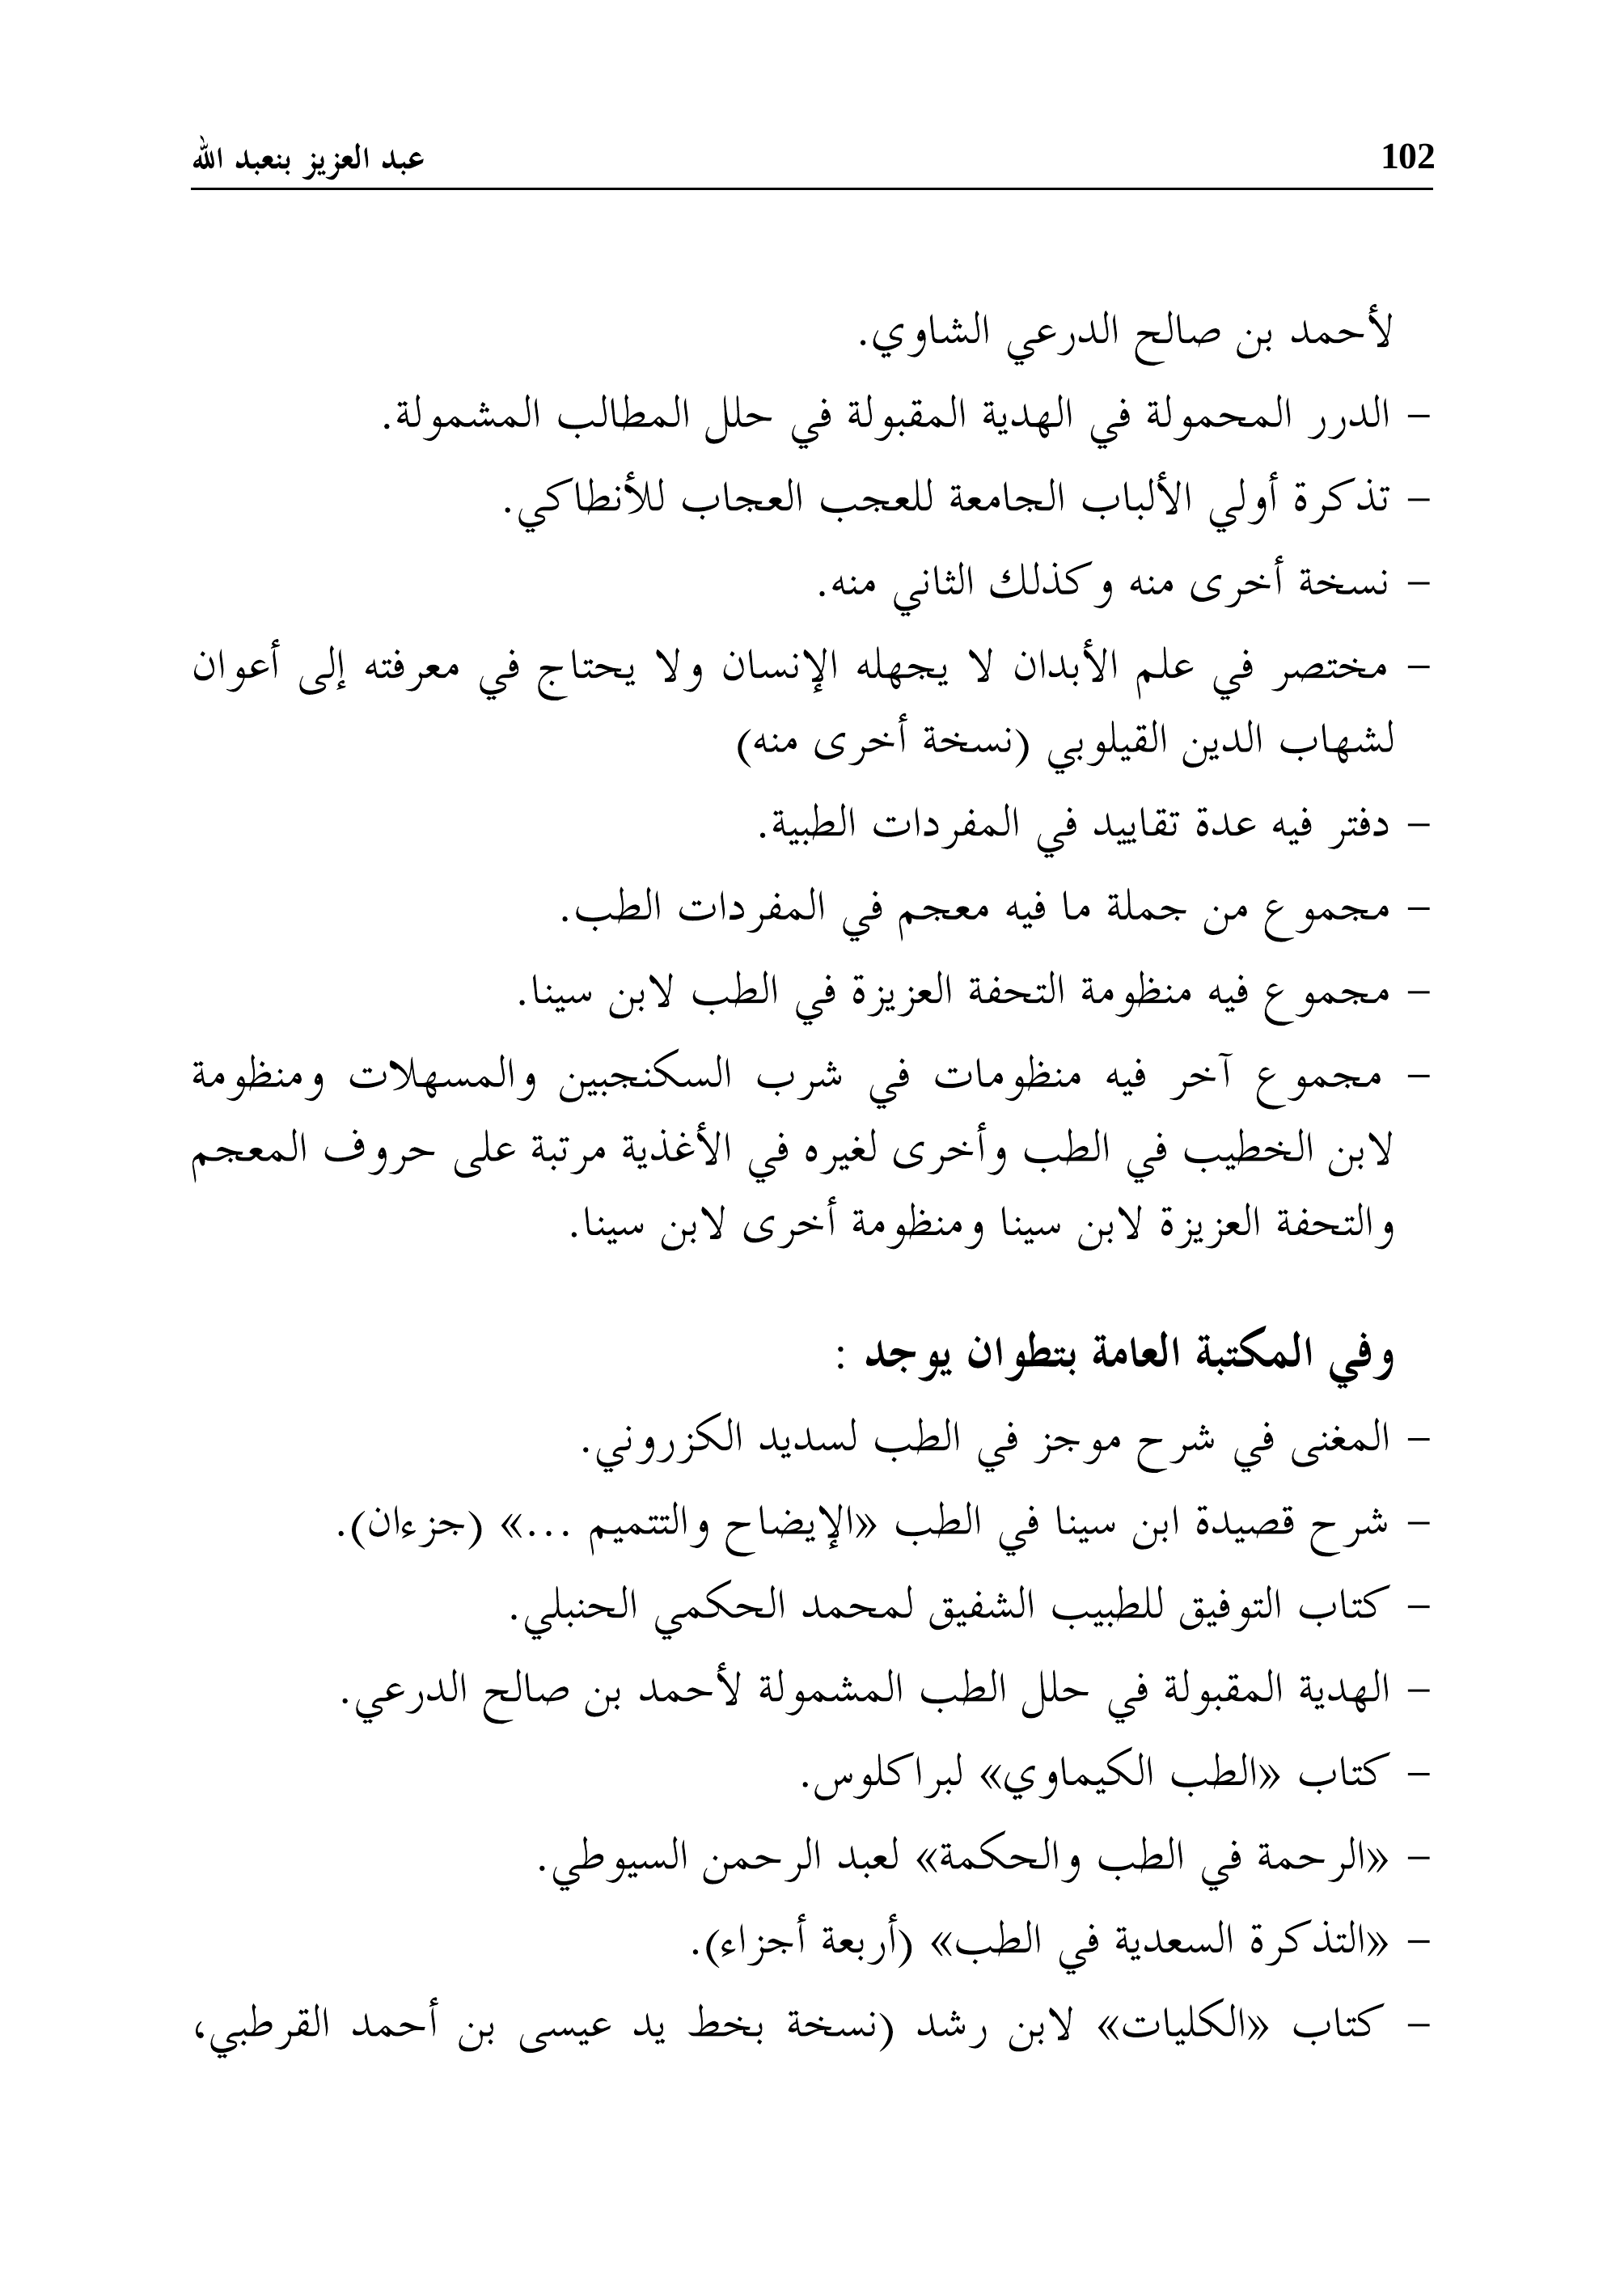 102
عبد العزيز بنعبد الله
لأحمد بن صالح الدرعي الشاوي.
– الدرر المحمولة في الهدية المقبولة في حلل المطالب المشمولة.
– تذكرة أولي الألباب الجامعة للعجب العجاب للأنطاكي.
– نسخة أخرى منه وكذلك الثاني منه.
– مختصر في علم الأبدان لا يجهله الإنسان ولا يحتاج في معرفته إلى أعوان
لشهاب الدين القيلوبي (نسخة أخرى منه)
– دفتر فيه عدة تقاييد في المفردات الطبية.
– مجموع من جملة ما فيه معجم في المفردات الطب.
– مجموع فيه منظومة التحفة العزيزة في الطب لابن سينا.
– مجموع آخر فيه منظومات في شرب السكنجبين والمسهلات ومنظومة
لابن الخطيب في الطب وأخرى لغيره في الأغذية مرتبة على حروف المعجم
والتحفة العزيزة لابن سينا ومنظومة أخرى لابن سينا.
وفي المكتبة العامة بتطوان يوجد :
– المغنى في شرح موجز في الطب لسديد الكزروني.
– شرح قصيدة ابن سينا في الطب «الإيضاح والتتميم ...» (جزءان).
– كتاب التوفيق للطبيب الشفيق لمحمد الحكمي الحنبلي.
– الهدية المقبولة في حلل الطب المشمولة لأحمد بن صالح الدرعي.
– كتاب «الطب الكيماوي» لبراكلوس.
– «الرحمة في الطب والحكمة» لعبد الرحمن السيوطي.
– «التذكرة السعدية في الطب» (أربعة أجزاء).
– كتاب «الكليات» لابن رشد (نسخة بخط يد عيسى بن أحمد القرطبي،